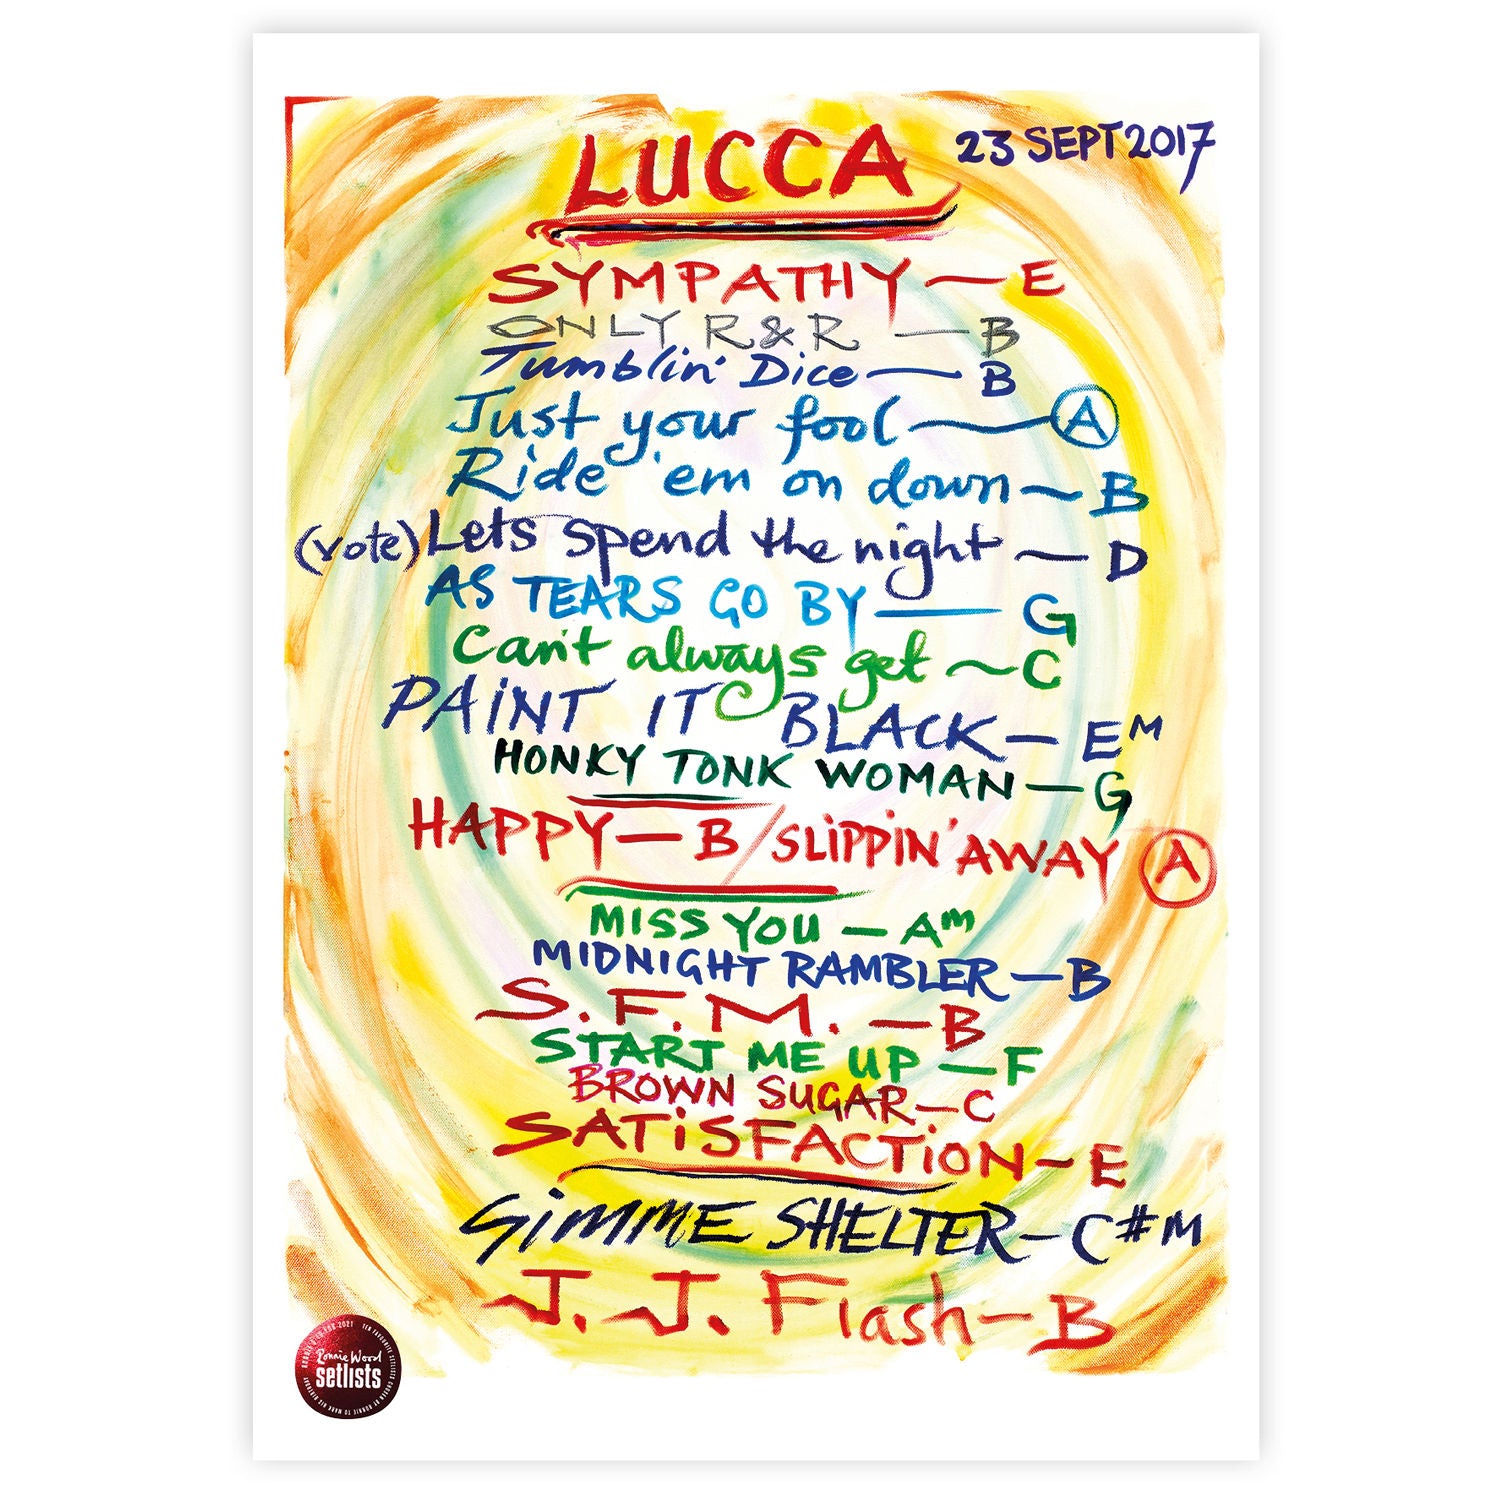 LUCCA 23 SEPT 2017
SYMPATHY — E
ONLY R&R — B
Tumblin' Dice — B
Just your fool — A
Ride 'em on down ~ B
(vote) Lets spend the night — D
AS TEARS GO BY — G
Can't always get ~ C
PAINT IT BLACK — EM
HONKY TONK WOMAN — G
HAPPY — B / SLIPPIN' AWAY A
MISS YOU — Am
MIDNIGHT RAMBLER — B
S.F.M. — B
START ME UP — F
BROWN SUGAR — C
SATiSFACTiON ~ E
GiMME SHELTER — C#M
J.J. Flash — B
Ronnie Wood
setlists